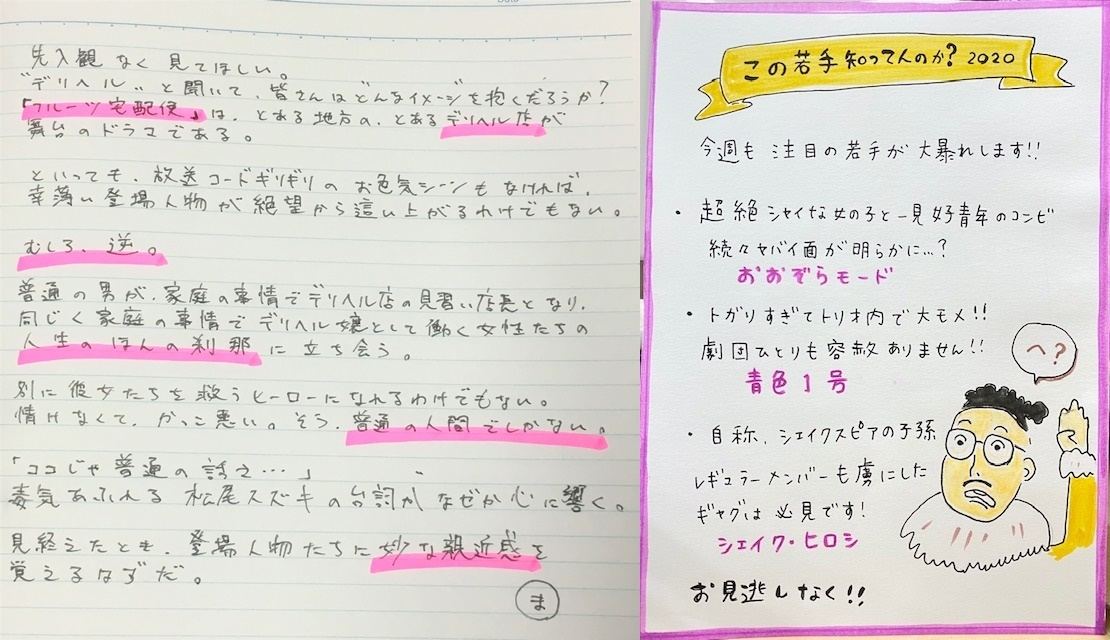 先入観なく見てほしい。
"デリヘル"と聞いて、皆さんはどんなイメージを抱くだろうか?
「フルーツ宅配便」は、とある地方の、とあるデリヘル店が
舞台のドラマである。
といっても、放送コードギリギリのお色気シーンもなければ、
幸薄い登場人物が絶望から這い上がるわけでもない。
むしろ、逆。
普通の男が、家庭の事情でデリヘル店の見習い店長となり、
同じく家庭の事情でデリヘル嬢として働く女性たちの
人生のほんの刹那に立ち会う。
別に彼女たちを救うヒーローになれるわけでもない。
情けなくて、かっこ悪い。そう、普通の人間でしかない。
「ココじゃ普通の話さ…」
毒気あふれる松尾スズキの台詞がなぜか心に響く。
見終えたとき、登場人物たちに妙な親近感を
覚えるはずだ。
ま
この若手知ってんのか? 2020
今週も注目の若手が大暴れします!!
・超絶シャイな女の子と一見好青年のコンビ
続々ヤバイ面が明らかに…?
おおぞらモード
・トガりすぎてトリオ内で大モメ!!
劇団ひとりも容赦ありません!!
青色1号
へ?
・自称、シェイクスピアの子孫
レギュラーメンバーも虜にした
ギャグは必見です!
シェイク・ヒロシ
お見逃しなく!!